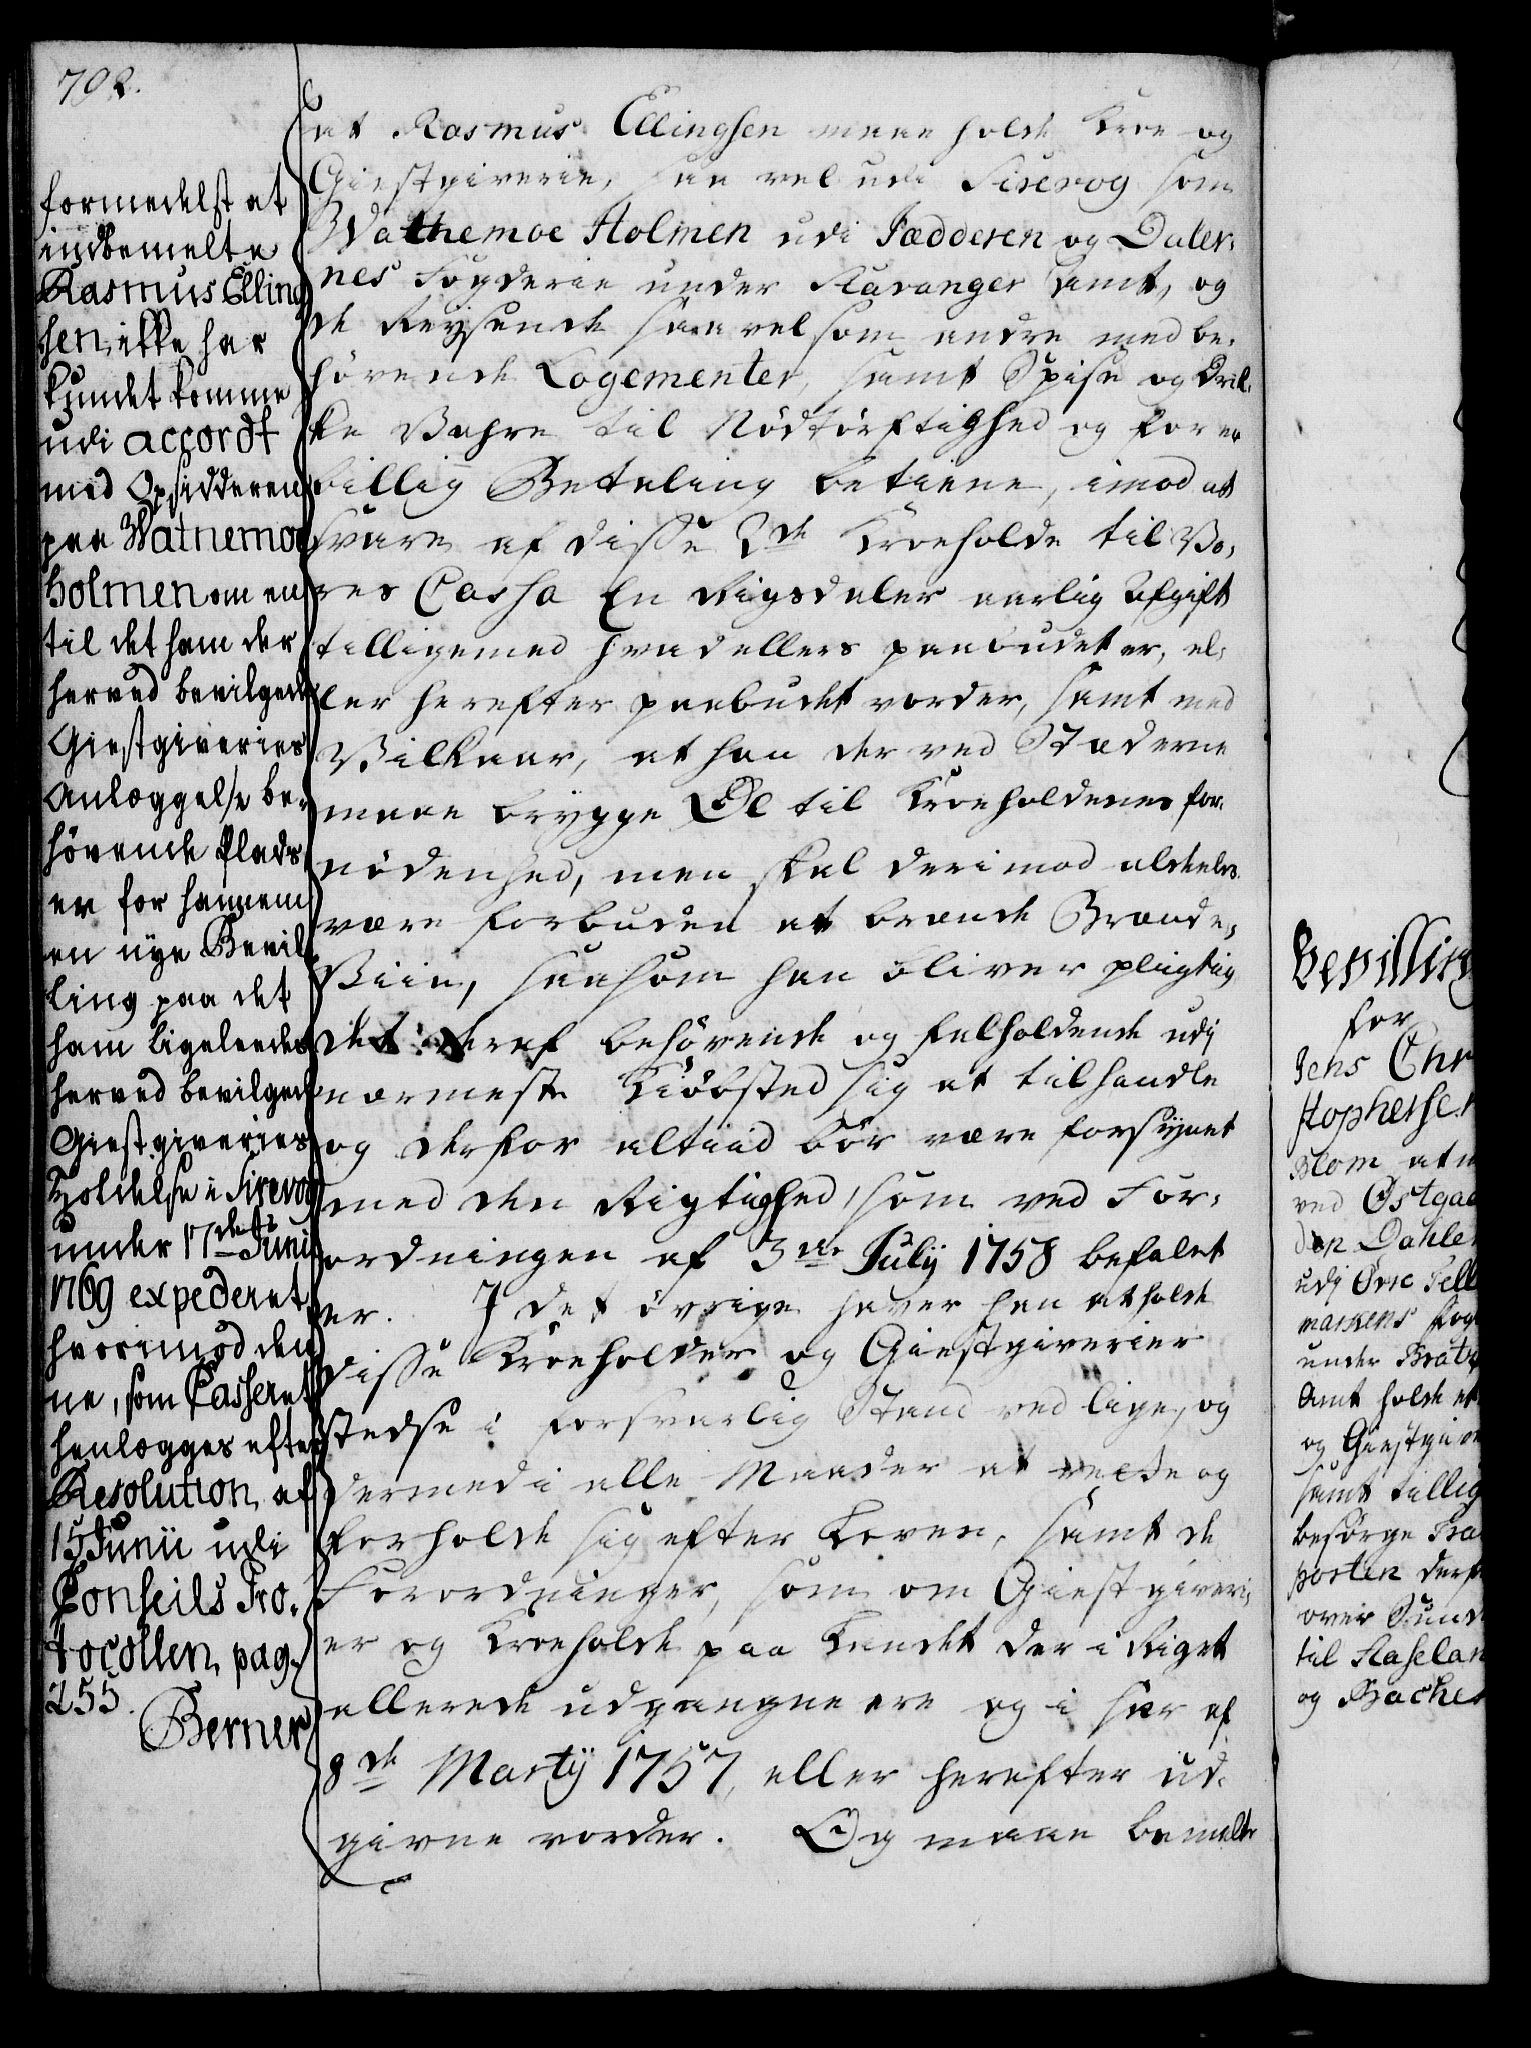 702.
formedelst at
indbemelte
Rasmus Elling
sen, ikke har
kundet komme
udi accordt
med Opsidderen
paa Watnemoe
holmen om en
til det ham der
herved bevilgede
Giestgiveries
Anlæggelse be-
hövende Plads,
er for hannem
en nÿe Bevil
ling paa det
ham ligeleedes
herved bevilgede
Giestgiveries
Holdelse i Sirevog
under 17de Junii
1769 expederet,
hvorimod den
ne, som Casseret
henlægges efter
Resolution af
15 Junii udi
Conseils Pro-
tocollen, pag.
255.
Berner
at Rasmus Ellingsen maae holde Kroe og
Giestgiverie, saa vel udi Sirevog som
Wathemoe Holmen udi Jædderen og Daler-
nes Fogderie under Stavanger Amt, og
de Reysende saavel som andre med be-
hövende Logementer, samt Spise og Drik-
ke Vahre til Nödtörftighed og for en
billig Betaling betiene, imod at
svare af disse 2de Kroehold til Vo-
res Cassa En Rigsdaler aarlig Afgift
tilligemed hvad ellers paabudet er, el-
ler herefter paabudet vorder, samt med
Vilkaar, at han der ved Stæderne
maae brygge Öl til Kroeholdenes for-
nödenhed, men skal derimod aldeeles
være forbuden at brænde Brænde-
Viin, saasom han bliver pligtig
det deraf behövende og falholdende udj
nærmeste Kiöbsted sig at tilhandle
og derfor altiid bör være forsÿnet
med den Rigtighed, som ved For-
ordningen af 3die Julÿ 1758 befalet
er. I det övrige haver han at holde
disse Kroeholder og Giestgiverier
stedse i forsvarlig Stand ved lige, og
dermed i alle Maader at rette og
forholde sig efter Loven, samt de
Forordninger, som om Giestgiveri-
er og Kroehold paa Landet der i Riget
allerede udgangne ere og i sær af
8de Martÿ 1757, eller herefter ud-
givne vorder. Og maae bemelte
Bevilling
for
Jens Chr
stophersen
Blom at m
ved Östgaa
den Dahle
udj Övre Tell
markens fog
under Brats
Amt holde et
og Giestgive
samt tillig
besörge Tra
porten der
over Sund
til Haselan
og Bache